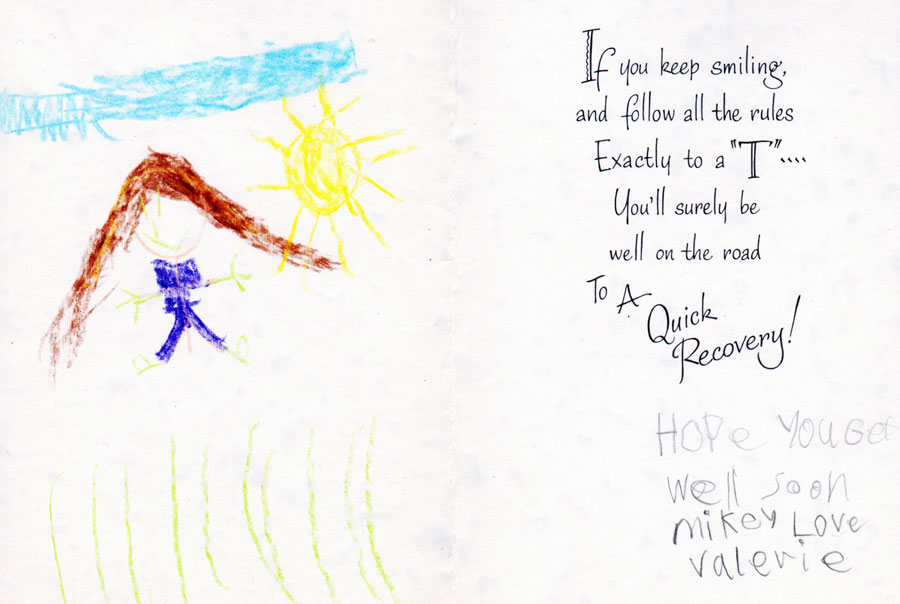 If you keep smiling,
and follow all the rules
Exactly to a "T"....
You'll surely be
well on the road
To A
Quick
Recovery!
HOPe YOU Get
well soon
mikey Love
valerie